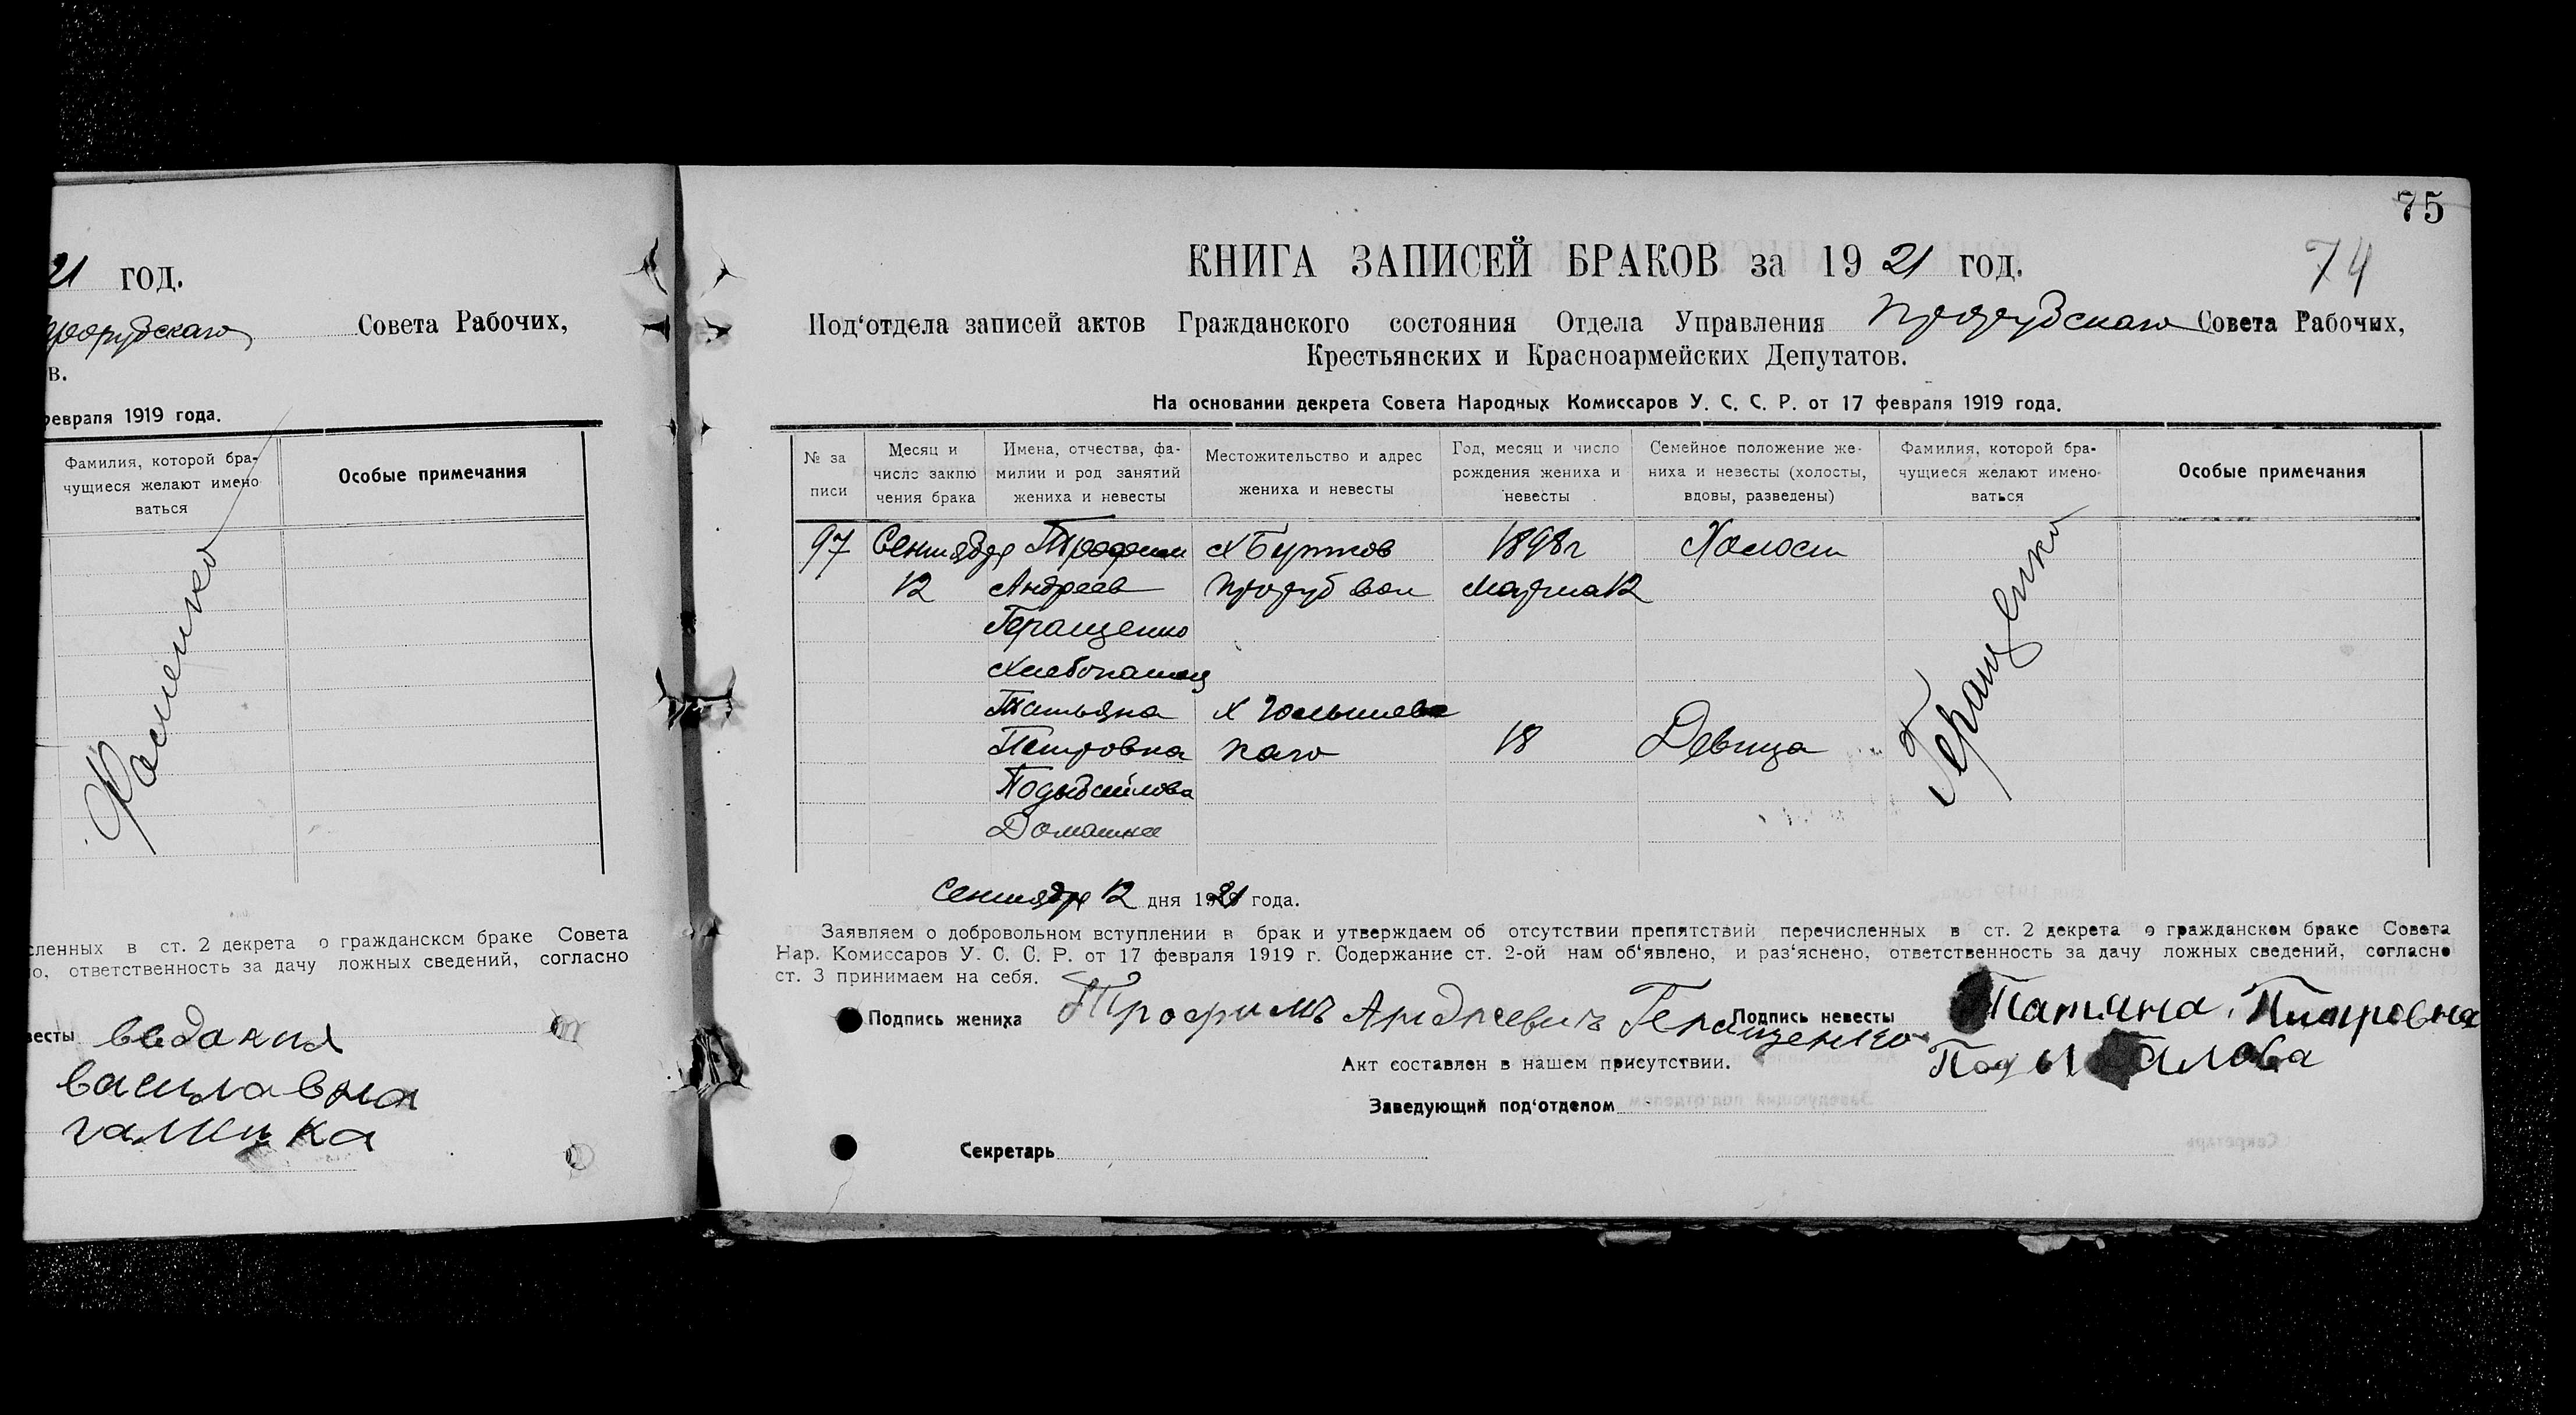 21 год.
Совета Рабочих,
в.
февраля 1919 года.
Фамилия, которой бра-
чущиеся желают имено
ваться
Особые примечания
сленных в ст. 2 декрета о гражданском браке Совета
о, ответственность за дачу ложных сведений, согласно
весты
75
74
КНИГА ЗАПИСЕЙ БРАКОВ за 1921 год.
Под'отдела записей актов Гражданского состояния Отдела Управления Совета Рабочих,
Крестьянских и Красноармейских Депутатов.
На основании декрета Совета Народных Комиссаров У. С. С. Р. от 17 февраля 1919 года.
№ за
писи
Месяц и
число заклю
чения брака
Имена, отчества, фа-
милии и род занятий
жениха и невесты
Местожительство и адрес
жениха и невесты
Год, месяц и число
рождения жениха и
невесты
Семейное положение же-
ниха и невесты (холосты,
вдовы, разведены)
Фамилия, которой бра-
чущиеся желают имено-
ваться
Особые примечания
97 Сентября Трофим х Бутков 1898г Холост
12 Андреев вол Марта 12
Геращенко
Хлебопашец
Татьяна х
Петровна 18 Девица
Домашнее
Геращенко
Сентября 12 дня 1921 года.
Заявляем о добровольном вступлении в брак и утверждаем об отсутствии препятствий перечисленных в ст. 2 декрета о гражданском браке Совета
Нар. Комиссаров У. С. С. Р. от 17 февраля 1919 г. Содержание ст. 2-ой нам об'явлено, и раз'яснено, ответственность за дачу ложных сведений, согласно
ст. 3 принимаем на себя.
Подпись жениха Трофимъ Андреевичъ Геращенко Подпись невесты Татяна Питровна
Акт составлен в нашем присутствии.
Заведующий под'отделом
Секретарь